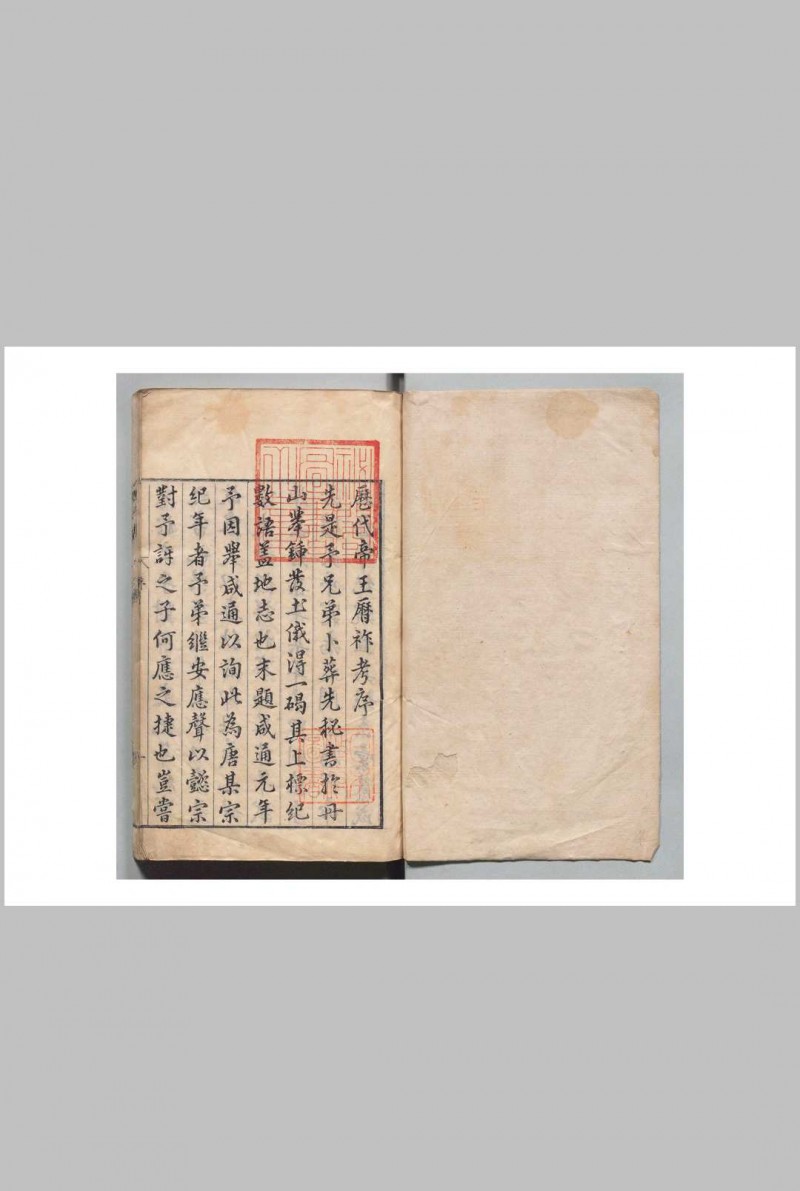 歷代帝王曆祚考序
先是予兄弟卜葬先秘書於丹
山舉鍤發土俄得一碣其上標紀
數語蓋地志也末題咸通元年
予因舉咸通以詢此為唐某宗
紀年者予弟繼安應聲以懿宗
對予訝之子何應之捷也豈嘗